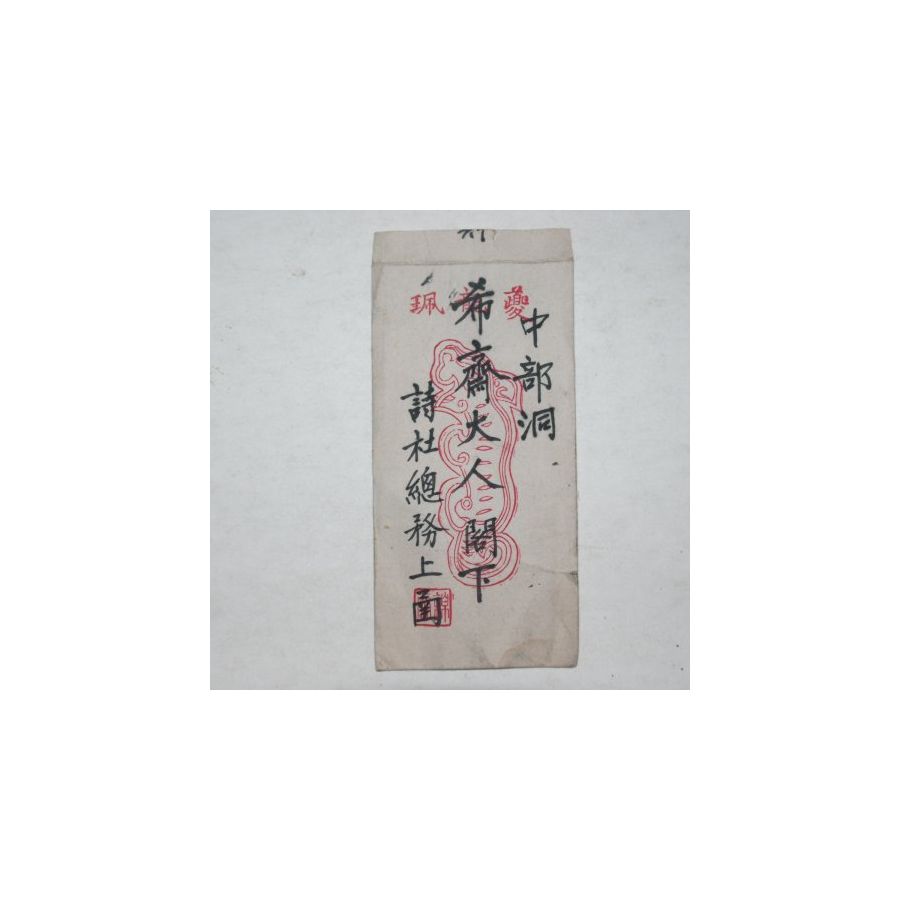 中部洞
希齋大人 閣下
詩社總務上函
珮 夔